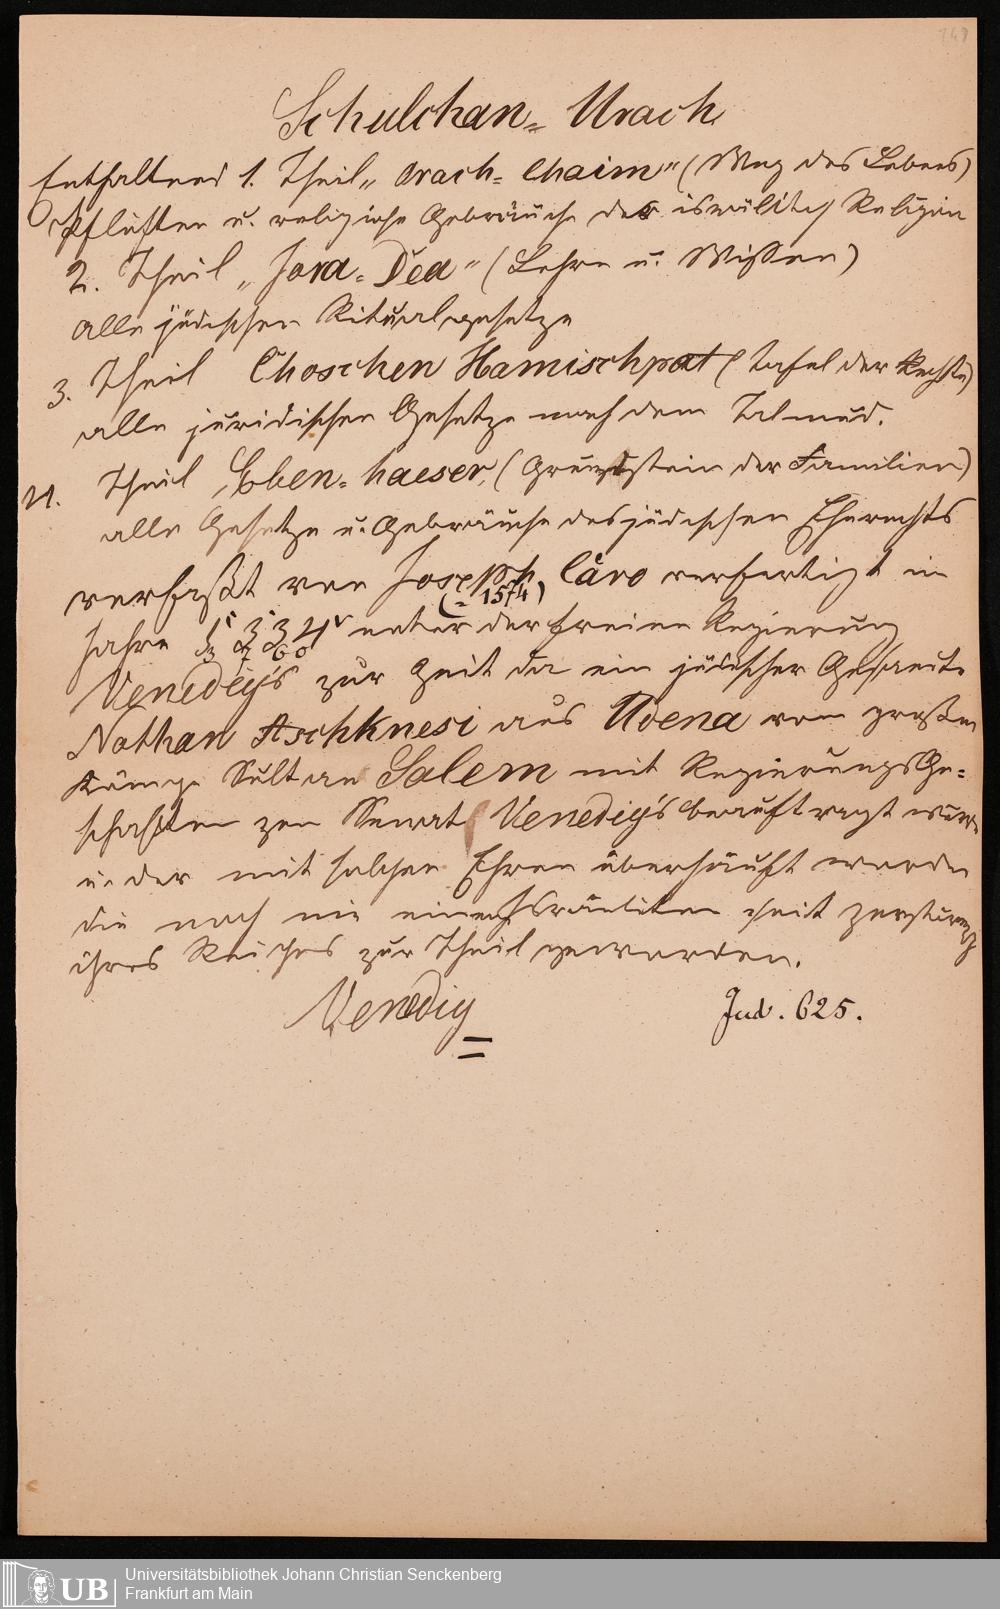 Schulchan-Urach
Enthaltend 1. Theil „Orach-Chaim" (Weg des Lebens)
Pflichten u. religiose Gebräuche der israelitis Religion
2. Theil „Jora-Dea" (Lehre u. Wissen)
alle jüdischen Ritualgesetze
3. Theil Choschen Hamischpat (Tafel der Rechte)
alle juridischen Gesetze nach dem Talmud.
4. Theil Eben-haeser, (Grundstein der Familien)
alle Gesetze u. Gebräuche des jüdischen Eherechts
verfaßt von Joseph Caro verfertigt in
(= 1574)
Jahre 5334 unter der freien Regierung
Venedigs zur Zeit da ein jüdischer Gesante
Nathan Aschknesi aus Udena vom großen
Könige Sultan Salem mit Regierungsge-
schäften zen Senat Venedigs beauftragt wurde
u. der mit solchen Ehren überhäuft worden
die noch nie einem Israeliten seit zerstörung
ihres Reiches zur Theil geworden.
Venedig
Jud. 625.
UB
Universitätsbibliothek Johann Christian Senckenberg
Frankfurt am Main